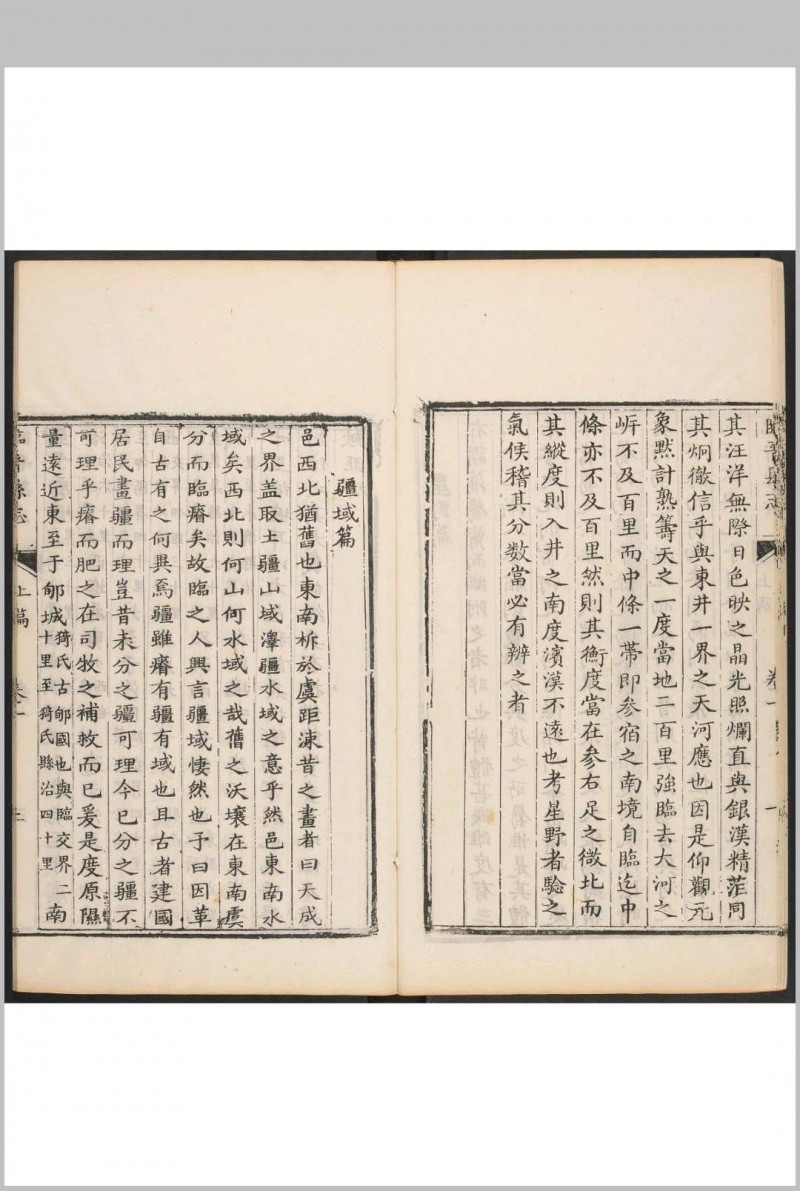 其汪洋無際日色映之晶光照爛直與銀漢精茫同
其炯徹信乎與東井一界之天河應也因是仰觀元
象黙計熟籌天之一度當地二百里強臨去大河之
㟁不及百里而中條一帯即參宿之南境自臨迄中
條亦不及百里然則其衡度當在參右足之微北而
其縱度則入井之南度濱漢不遠也考星野者驗之
氣候稽其分數當必有辨之者
疆域篇
邑西北猶舊也東南柝於虞距涑昔之畫者曰天成
之界盖取土疆山域澤疆水域之意乎然邑東南水
域矣西北則何山何水域之哉舊之沃壤在東南虞
分而臨瘠矣故臨之人興言疆域悽然也予曰因革
自古有之何異焉疆雖瘠有疆有域也且古者建國
居民畫疆而理豈昔未分之疆可理今已分之疆不
可理乎瘠而肥之在司牧之補救而已爰是度原隰
量遠近東至于郇城猗氏古郇國也與臨交界二十里至猗氏縣治四十里南
臨晉縣志
上篇
卷一